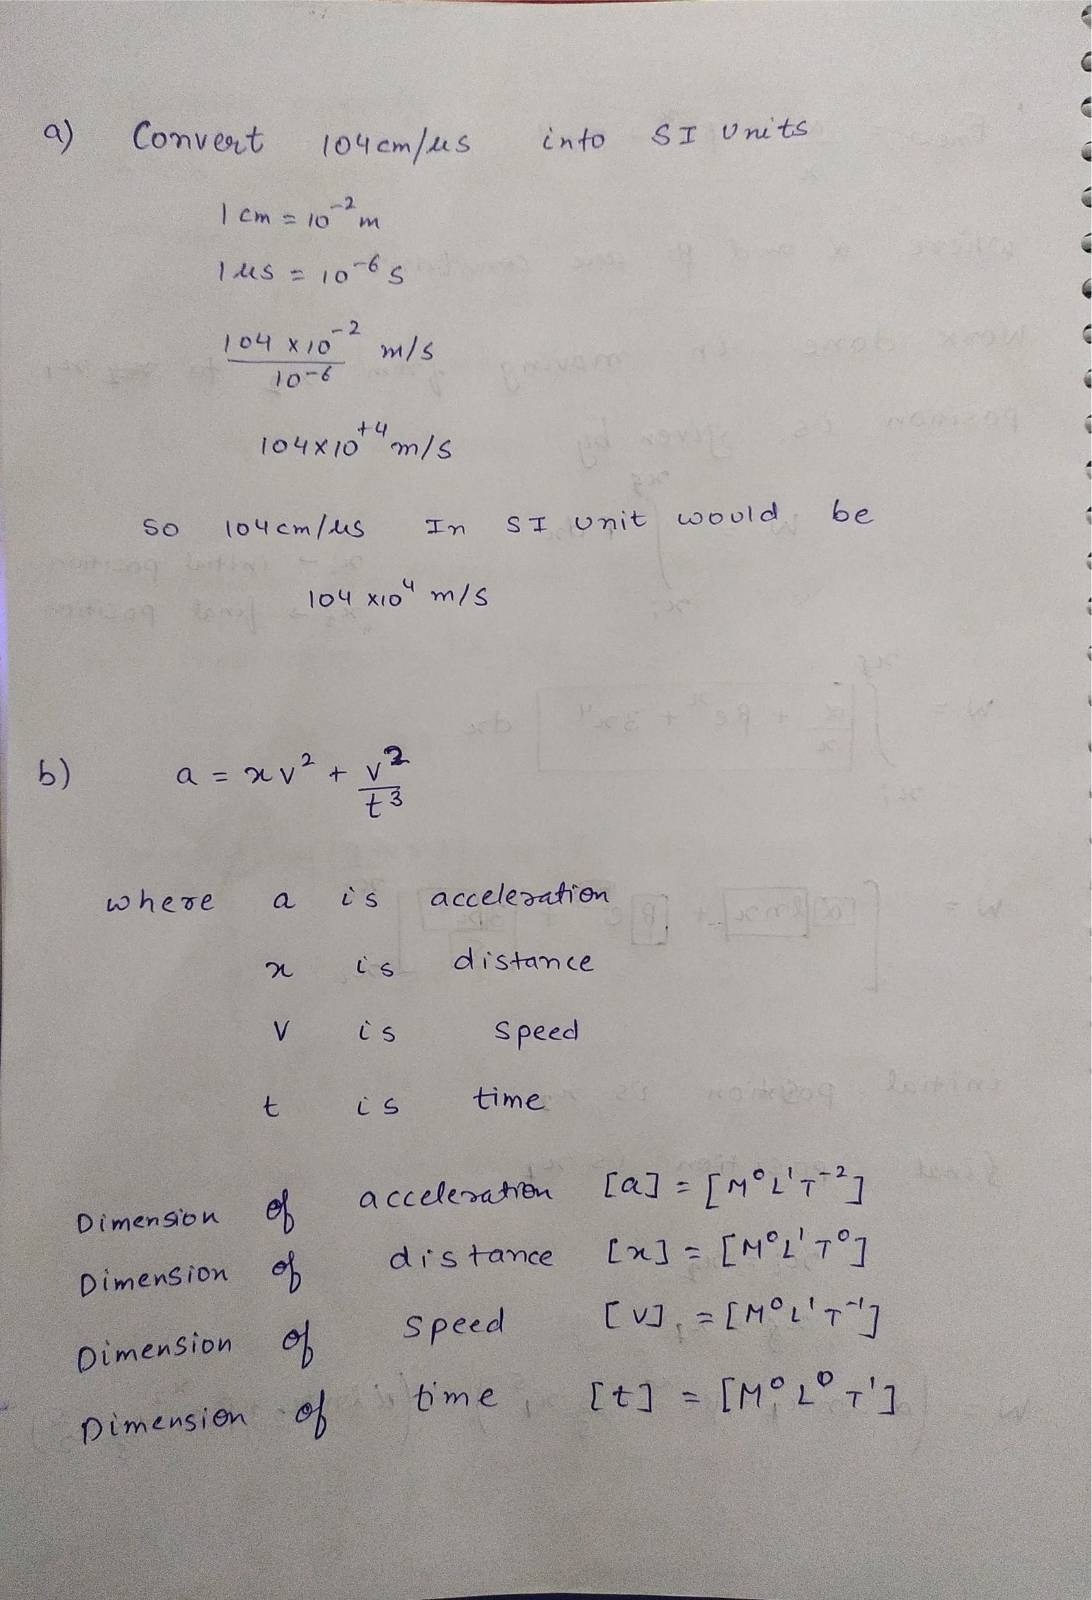 a) Convert 104 cm/μs into SI Units
1 cm = 10⁻² m
1 μs = 10⁻⁶ s
104 × 10⁻² / 10⁻⁶ m/s
104 × 10⁺⁴ m/s
So 104 cm/μs In SI unit would be
104 × 10⁴ m/s
b) a = xv² + v²/t³
where a is acceleration
x is distance
v is speed
t is time
Dimension of acceleration [a] = [M⁰L¹T⁻²]
Dimension of distance [x] = [M⁰L¹T⁰]
Dimension of speed [v] = [M⁰L¹T⁻¹]
Dimension of time [t] = [M⁰L⁰T¹]